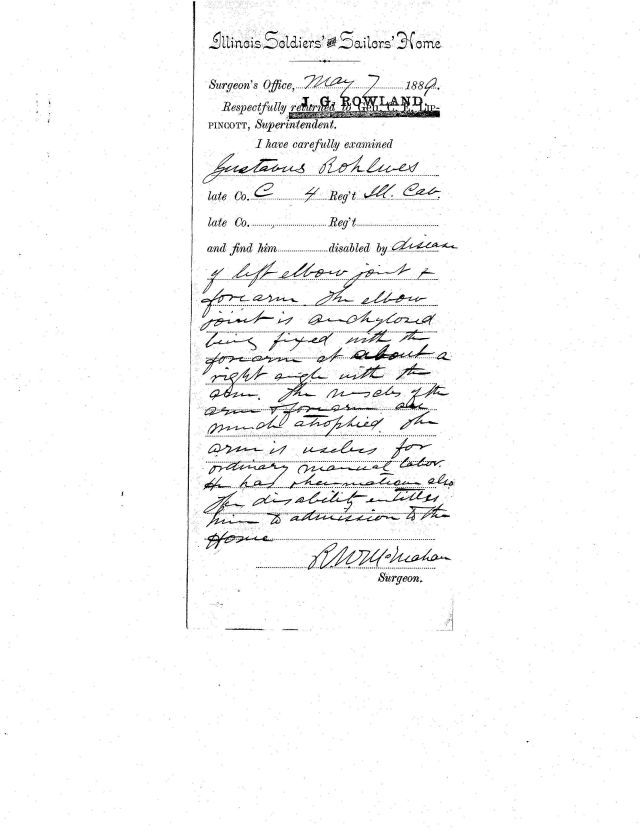 Illinois Soldiers' and Sailors' Home
Surgeon's Office, May 7 1889.
J. G. ROWLAND
Respectfully returned to Gen. C. E. LIP-
PINCOTT, Superintendent.
I have carefully examined
Gustavus Rohlwes
late Co. C 4 Reg't Ill. Cav.
late Co. Reg't
and find him disabled by disease
of left elbow joint &
forearm The elbow
joint is anchylosed
being fixed with the
forearm at about a
right angle with the
arm. The muscles of the
arm & forearm are
much atrophied. The
arm is useless for
ordinary manual labor.
He has rheumatism also
The disability entitles
him to admission to the
Home
R. W. McMahan
Surgeon.